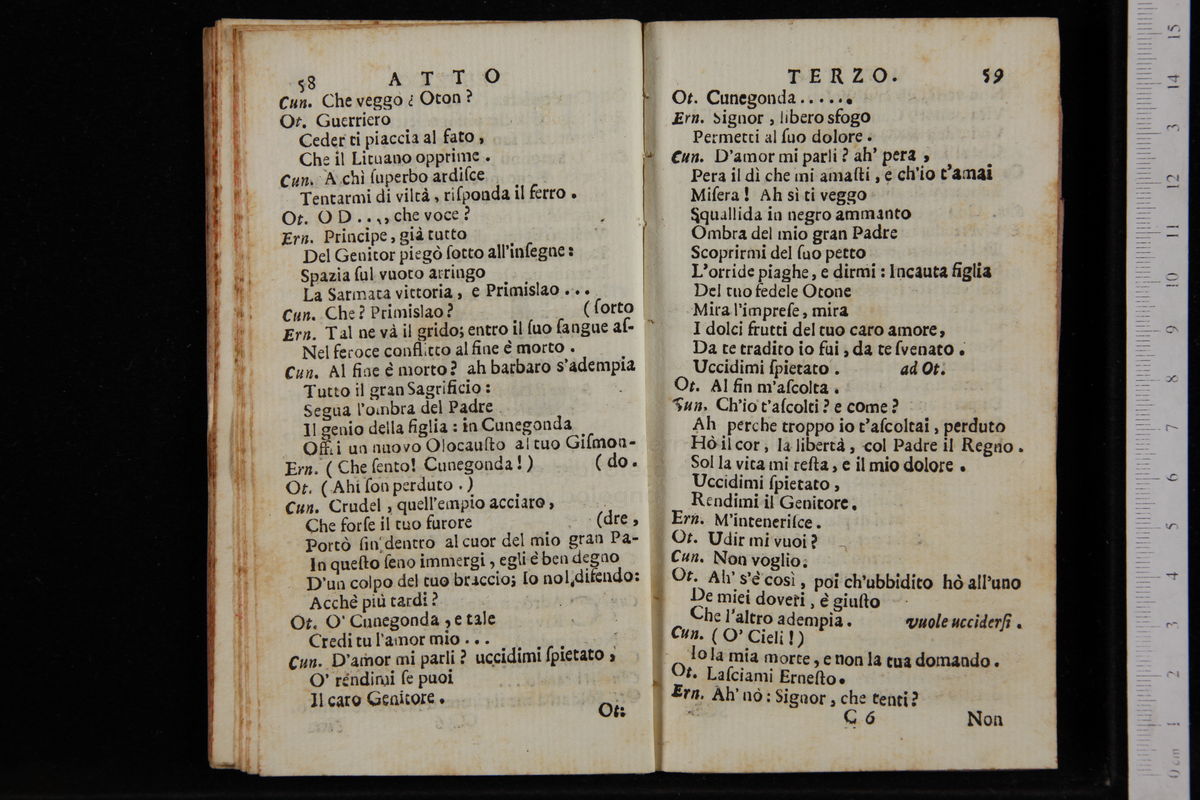 58 ATTO
Cun. Che veggo ¿ Oton?
Ot. Guerriero
Ceder ti piaccia al fato,
Che il Lituano opprime.
Cun. A chi ſuperbo ardiſce
Tentarmi di viltà, riſponda il ferro.
Ot. O D...., che voce?
Ern. Principe, già tutto
Del Genitor piegò ſotto all'inſegne:
Spazia ſul vuoto arringo
La Sarmata vittoria, e Primislao...
Cun. Che? Primislao? (ſorto
Ern. Tal ne và il grido; entro il ſuo ſangue aſ-
Nel feroce conflitto al fine è morto.
Cun. Al fine è morto? ah barbaro s'adempia
Tutto il gran Sagrificio:
Segua l'ombra del Padre
Il genio della figlia: in Cunegonda
Offri un nuovo Olocauſto al tuo Giſmon-
Ern. (Che ſento! Cunegonda!) (do.
Ot. (Ahi ſon perduto.)
Cun. Crudel, quell'empio acciaro,
Che forſe il tuo furore (dre,
Portò ſin dentro al cuor del mio gran Pa-
In queſto ſeno immergi, egli è ben degno
D'un colpo del tuo braccio; Io nol difendo:
Acchè più tardi?
Ot. O' Cunegonda, e tale
Credi tu l'amor mio...
Cun. D'amor mi parli? uccidimi ſpietato,
O' rendimi ſe puoi
Il caro Genitore.
Ot:
TERZO. 59
Ot. Cunegonda......
Ern. Signor, libero sfogo
Permetti al ſuo dolore.
Cun. D'amor mi parli? ah' pera,
Pera il dì che mi amaſti, e ch'io t'amai
Miſera! Ah sì ti veggo
Squallida in negro ammanto
Ombra del mio gran Padre
Scoprirmi del ſuo petto
L'orride piaghe, e dirmi: Incauta figlia
Del tuo fedele Otone
Mira l'impreſe, mira
I dolci frutti del tuo caro amore,
Da te tradito io fui, da te ſvenato.
Uccidimi ſpietato. ad Ot.
Ot. Al fin m'aſcolta.
Cun. Ch'io t'aſcolti? e come?
Ah perche troppo io t'aſcoltai, perduto
Hò il cor, la libertà, col Padre il Regno.
Sol la vita mi reſta, e il mio dolore.
Uccidimi ſpietato,
Rendimi il Genitore.
Ern. M'inteneriſce.
Ot. Udir mi vuoi?
Cun. Non voglio.
Ot. Ah' s'è così, poi ch'ubbidito hò all'uno
De miei doveri, è giuſto
Che l'altro adempia. vuole ucciderſi.
Cun. (O' Cieli!)
Io la mia morte, e non la tua domando.
Ot. Laſciami Erneſto.
Ern. Ah' nò: Signor, che tenti?
C 6 Non